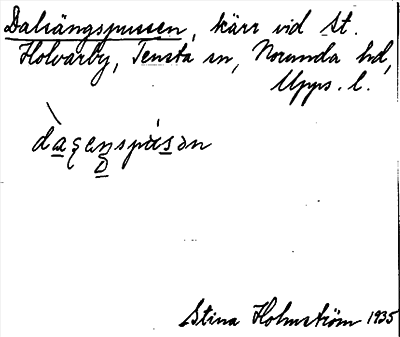 Dalsängspussen, kärr vid St.
Holvarby, Tensta sn, Norunda hd,
Upps. l.
Stina Holmström 1935